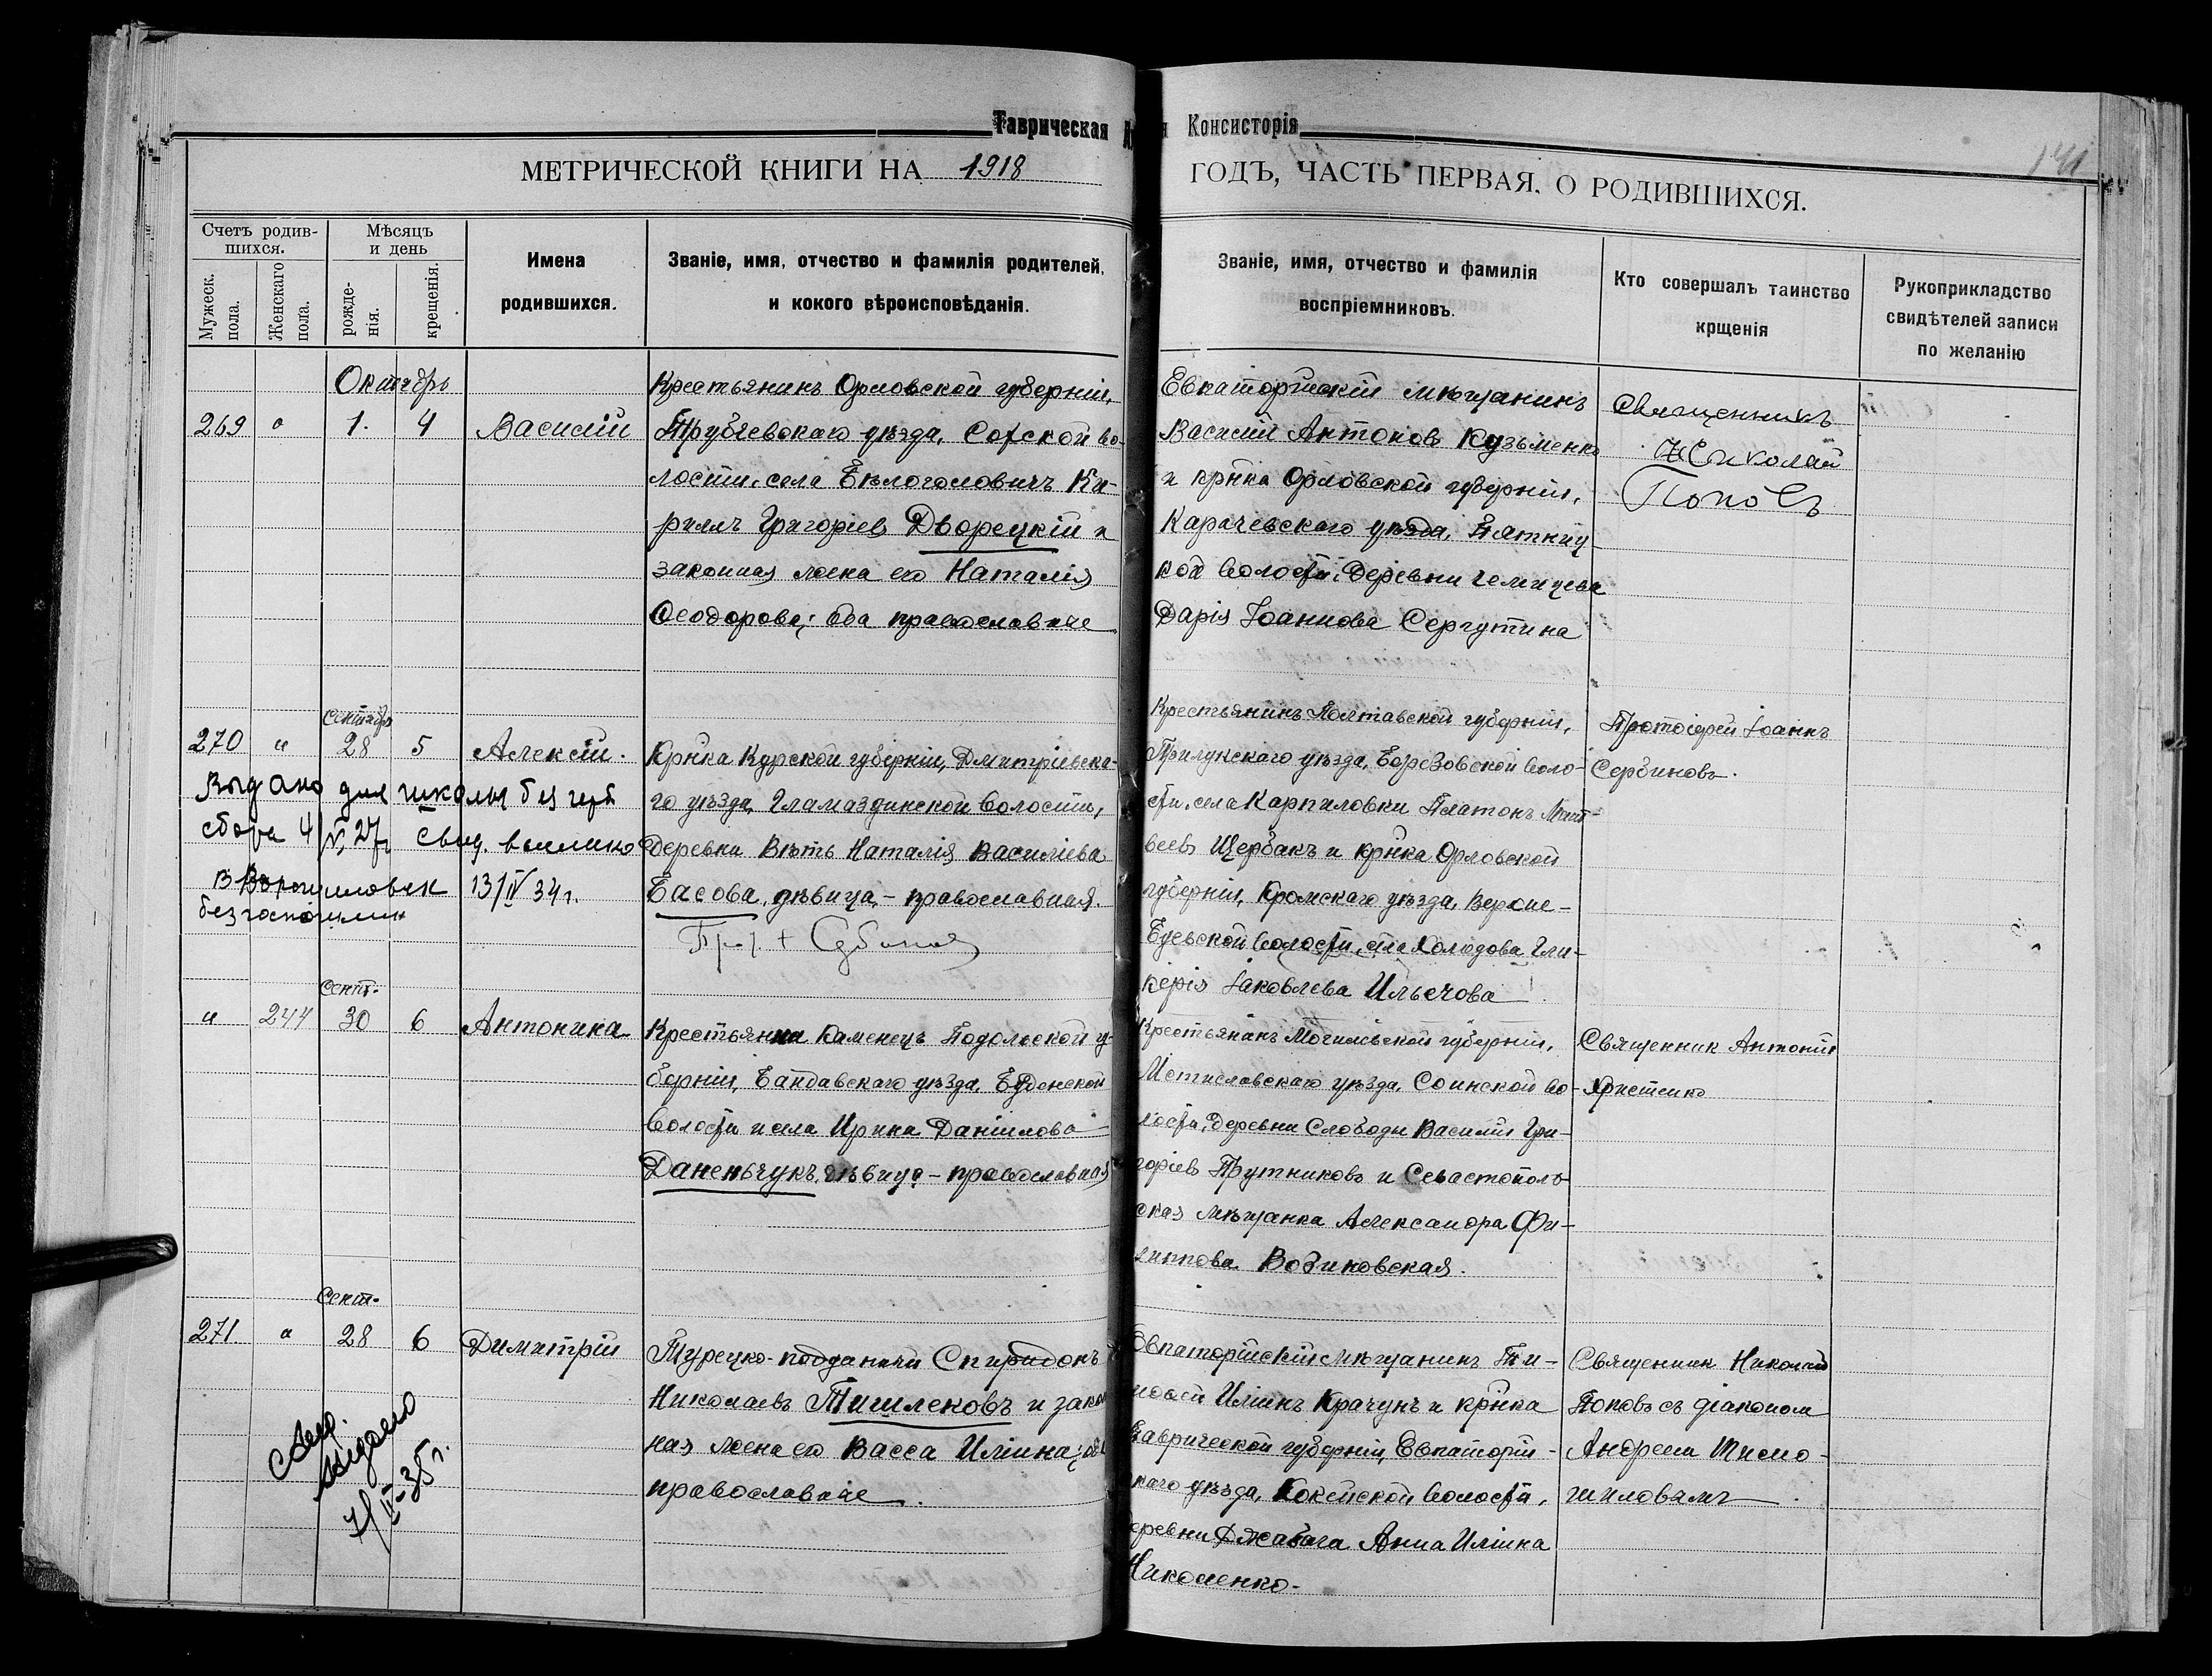 Таврическая
Консисторія
МЕТРИЧЕСКОЙ КНИГИ НА 1918
ГОДЪ, ЧАСТЬ ПЕРВАЯ, О РОДИВШИХСЯ.
Счетъ родив-
шихся.
Мужеск.
пола.
Женскаго
пола.
Мѣсяцъ
и день
рожде-
нія.
крещенія.
Имена
родившихся.
Званіе, имя, отчество и фамилія родителей,
и кокого вѣроисповѣданія.
Званіе, имя, отчество и фамилія
воспріемниковъ.
Кто совершалъ таинство
крщенія
Рукоприкладство
свидѣтелей записи
по желанію
Октябрь
269 " 1. 4 Василій
Крестьянинъ Орловской губерніи,
Трубчевскаго уѣзда, Совской во-
лости, села Бѣлоголовичъ Ки-
риллъ Григоріев Дворецкій и
законная жена его Наталія
Ѳеодорова; оба православные
Евпаторійскій мѣщанинъ
Василій Антонов Кузьменко
и крн̃ка Орловской губерніи,
Карачевскаго уѣзда, Пятниц
кой волости, деревни
Дарія Іоаннова Сергутина
Священникъ
Николай
Поповъ
Сентябр
270 " 28 5 Алексій.
Крн̃ка Курской губерніи, Дмитріевска-
го уѣзда, Гламаздинской волости,
деревни Вѣть Наталія Василіева
Басова, дѣвица, - православная.
Выдано для школы без герб
сбора 4/V, 27г свид. выслано
в Ворошиловск 13/IV 34г.
без госпошлин
Крестьянинъ Полтавской губерніи,
Прилукскаго уѣзда, Березовской воло-
сти, села Карпиловки Платонъ Мат-
веевъ Щербакъ и крн̃ка Орловской
губерніи, Кромскаго уѣзда, Верхне-
Боевской волости, села Холодова Гли-
керія Іаковлева Ильичова
Протоіерей Іоаннъ
Сербиновъ.
Сент.
" 244 30 6 Антонина
Крестьянка Каменецъ Подольской гу-
берніи, Балдавскаго уѣзда, Буденской
волости и села Ирина Даніилова
Даненьчукъ, дѣвица - православная
Крестьянинъ Могилевской губерніи,
Мстиславскаго уѣзда, Соинской во-
лости, деревни Слободы Василій Гри-
горіев Прутниковъ и Севастополь-
ская мѣщанка Александра Фи-
липпова Водиновская.
Священник Антоній
Христенко
Сент.
271. " 28 6 Димитрій
Турецко-подданный Спиридонъ
Николаевъ Тишлековъ и закон
ная жена его Васса Иліина; оба
православные.
Свид.
выдано
4/II-35г.
Евпаторійскій мѣщанинъ Ти-
моѳей Иліинъ Крачунъ и крн̃ка
Таврической губерніи, Евпаторій-
скаго уѣзда, Кокейской волости,
деревни Джабага Анна Иліина
Николенко.
Священник Николай
Поповъ съ діакономъ
Андреем Тисмо-